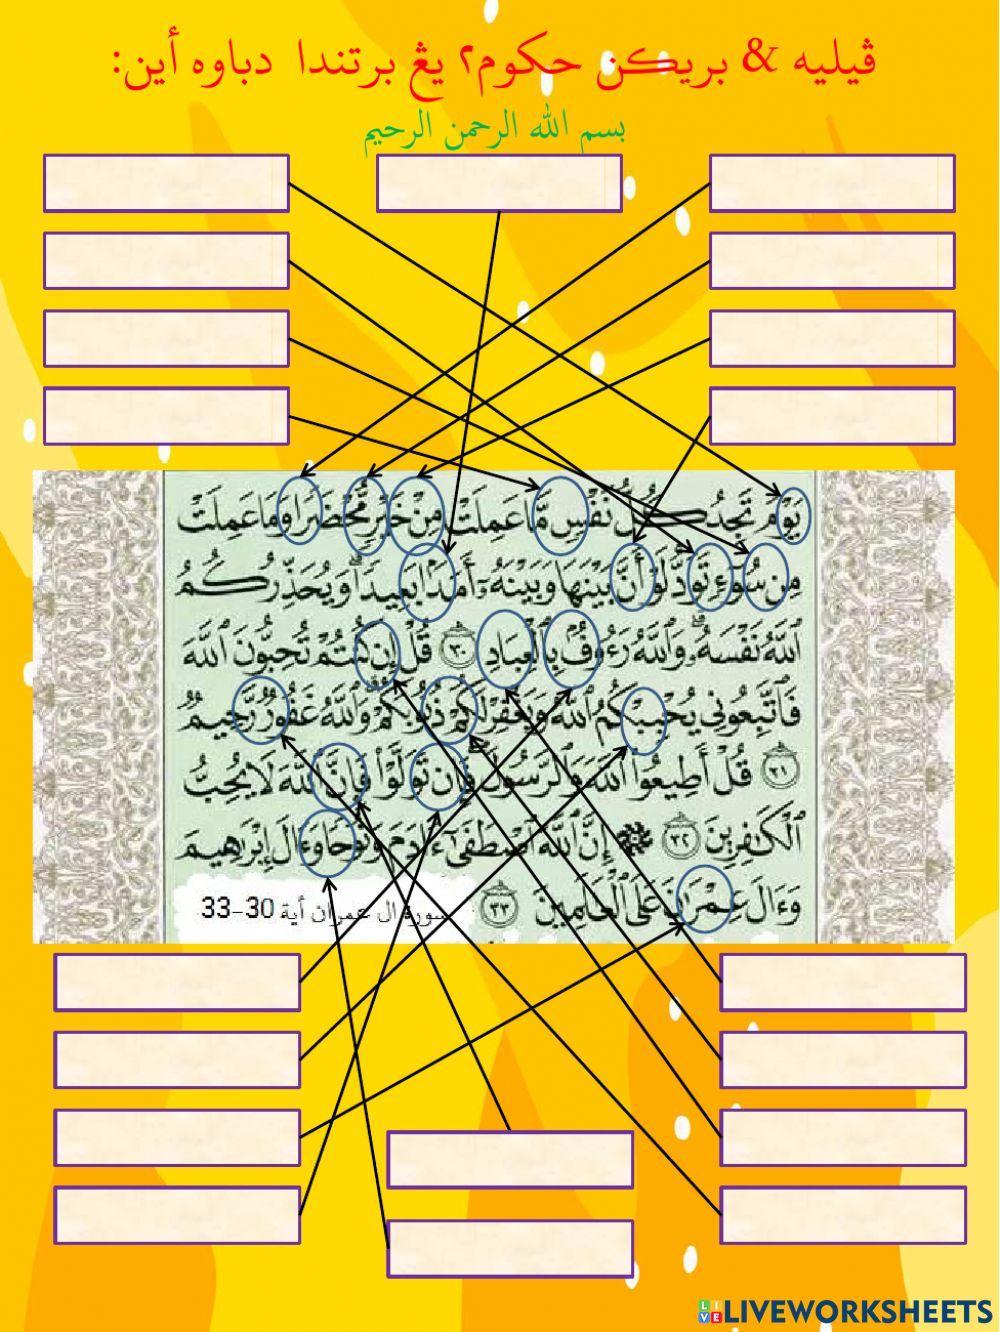 ڤيليه & بريكن حكوم٢ يڠ برتندا دباوه أين:
بسم الله الرحمن الرحيم
يَوْمَ تَجِدُ كُلُّ نَفْسٍ مَّا عَمِلَتْ مِنْ خَيْرٍ مُّحْضَرًا وَمَا عَمِلَتْ
مِن سُوٓءٍ تَوَدُّ لَوْ أَنَّ بَيْنَهَا وَبَيْنَهُۥٓ أَمَدًۢا بَعِيدًا ۗ وَيُحَذِّرُكُمُ
ٱللَّهُ نَفْسَهُۥ ۗ وَٱللَّهُ رَءُوفٌۢ بِٱلْعِبَادِ ٣٠ قُلْ إِن كُنتُمْ تُحِبُّونَ ٱللَّهَ
فَٱتَّبِعُونِى يُحْبِبْكُمُ ٱللَّهُ وَيَغْفِرْ لَكُمْ ذُنُوبَكُمْ ۗ وَٱللَّهُ غَفُورٌ رَّحِيمٌ
٣١ قُلْ أَطِيعُوا۟ ٱللَّهَ وَٱلرَّسُولَ ۖ فَإِن تَوَلَّوْا۟ فَإِنَّ ٱللَّهَ لَا يُحِبُّ
ٱلْكَٰفِرِينَ ٣٢ ۞ إِنَّ ٱللَّهَ ٱصْطَفَىٰٓ ءَادَمَ وَنُوحًا وَءَالَ إِبْرَٰهِيمَ
وَءَالَ عِمْرَٰنَ عَلَى ٱلْعَٰلَمِينَ ٣٣
سورة ال عمران أية 30-33
LIVEWORKSHEETS